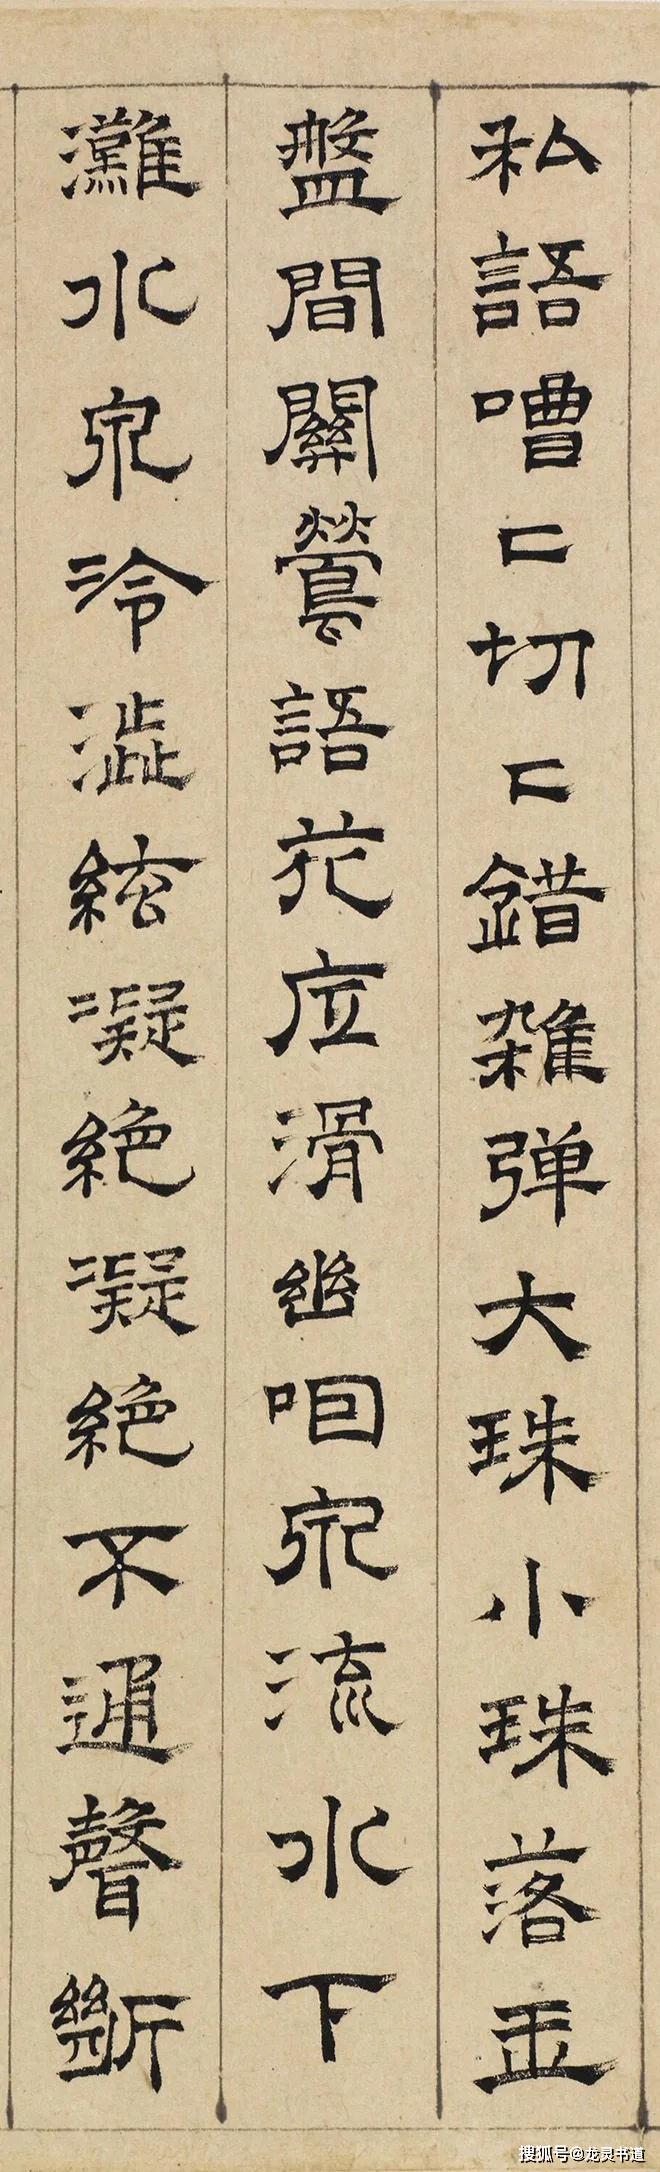 私語嘈〻切〻錯雑弹大珠小珠落玉
盤間關鶯語花底滑幽咽泉流水下
灘水泉冷澀絃凝絶凝絶不通聲斷
搜狐号@龙灵书道